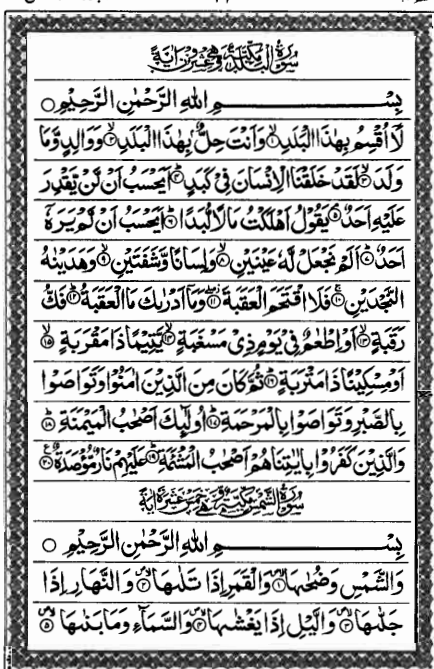 سُوۡرَةُ الۡبَلَدِ مَكِّيَّةٌ وَّهِىَ عِشۡرُوۡنَ اٰيَةً
بِسۡمِ اللهِ الرَّحۡمٰنِ الرَّحِيۡمِ ○
لَاۤ اُقۡسِمُ بِهٰذَا الۡبَلَدِ ۙ‏﴿۱﴾ وَاَنۡتَ حِلٌّ ۢ بِهٰذَا الۡبَلَدِ ۙ‏﴿۲﴾ وَوَالِدٍ وَّمَا
وَلَدَ ۙ‏﴿۳﴾ لَقَدۡ خَلَقۡنَا الۡاِنۡسَانَ فِىۡ كَبَدٍ ؕ‏﴿۴﴾ اَيَحۡسَبُ اَنۡ لَّنۡ يَّقۡدِرَ
عَلَيۡهِ اَحَدٌ‌ ۘ‏﴿۵﴾ يَقُوۡلُ اَهۡلَكۡتُ مَالًا لُّبَدًا ؕ‏﴿۶﴾ اَيَحۡسَبُ اَنۡ لَّمۡ يَرَهٗۤ
اَحَدٌ ؕ‏﴿۷﴾ اَلَمۡ نَجۡعَلۡ لَّهٗ عَيۡنَيۡنِ ۙ‏﴿۸﴾ وَلِسَانًا وَّشَفَتَيۡنِ ۙ‏﴿۹﴾ وَهَدَيۡنٰهُ
النَّجۡدَيۡنِ‌ ۚ‏﴿۱۰﴾ فَلَا اقۡتَحَمَ الۡعَقَبَةَ ۖ‏﴿۱۱﴾ وَمَاۤ اَدۡرٰٮكَ مَا الۡعَقَبَةُ ؕ‏﴿۱۲﴾ فَكُّ
رَقَبَةٍ ۙ‏﴿۱۳﴾ اَوۡ اِطۡعٰمٌ فِىۡ يَوۡمٍ ذِىۡ مَسۡغَبَةٍ ۙ‏﴿۱۴﴾ يَّتِيۡمًا ذَا مَقۡرَبَةٍ ۙ‏﴿۱۵﴾
اَوۡ مِسۡكِيۡنًا ذَا مَتۡرَبَةٍ ؕ‏﴿۱۶﴾ ثُمَّ كَانَ مِنَ الَّذِيۡنَ اٰمَنُوۡا وَتَوَاصَوۡا
بِالصَّبۡرِ وَتَوَاصَوۡا بِالۡمَرۡحَمَةِ ؕ‏﴿۱۷﴾ اُولٰٓٮِٕكَ اَصۡحٰبُ الۡمَيۡمَنَةِ ؕ‏﴿۱۸﴾
وَالَّذِيۡنَ كَفَرُوۡا بِاٰيٰتِنَا هُمۡ اَصۡحٰبُ الۡمَشۡـَٔـمَةِ ؕ‏﴿۱۹﴾ عَلَيۡهِمۡ نَارٌ مُّؤۡصَدَةٌ ‏﴿۲۰﴾
سُوۡرَةُ الشَّمۡسِ مَكِّيَّةٌ وَّهِىَ خَمۡسَ عَشَرَةَ اٰيَةً
بِسۡمِ اللهِ الرَّحۡمٰنِ الرَّحِيۡمِ ○
وَالشَّمۡسِ وَضُحٰٮهَا ۙ‏﴿۱﴾ وَالۡقَمَرِ اِذَا تَلٰٮهَا ۙ‏﴿۲﴾ وَالنَّهَارِ اِذَا
جَلّٰٮهَا ۙ‏﴿۳﴾ وَالَّيۡلِ اِذَا يَغۡشٰٮهَا ۙ‏﴿۴﴾ وَالسَّمَآءِ وَمَا بَنٰٮهَا ۙ‏﴿۵﴾